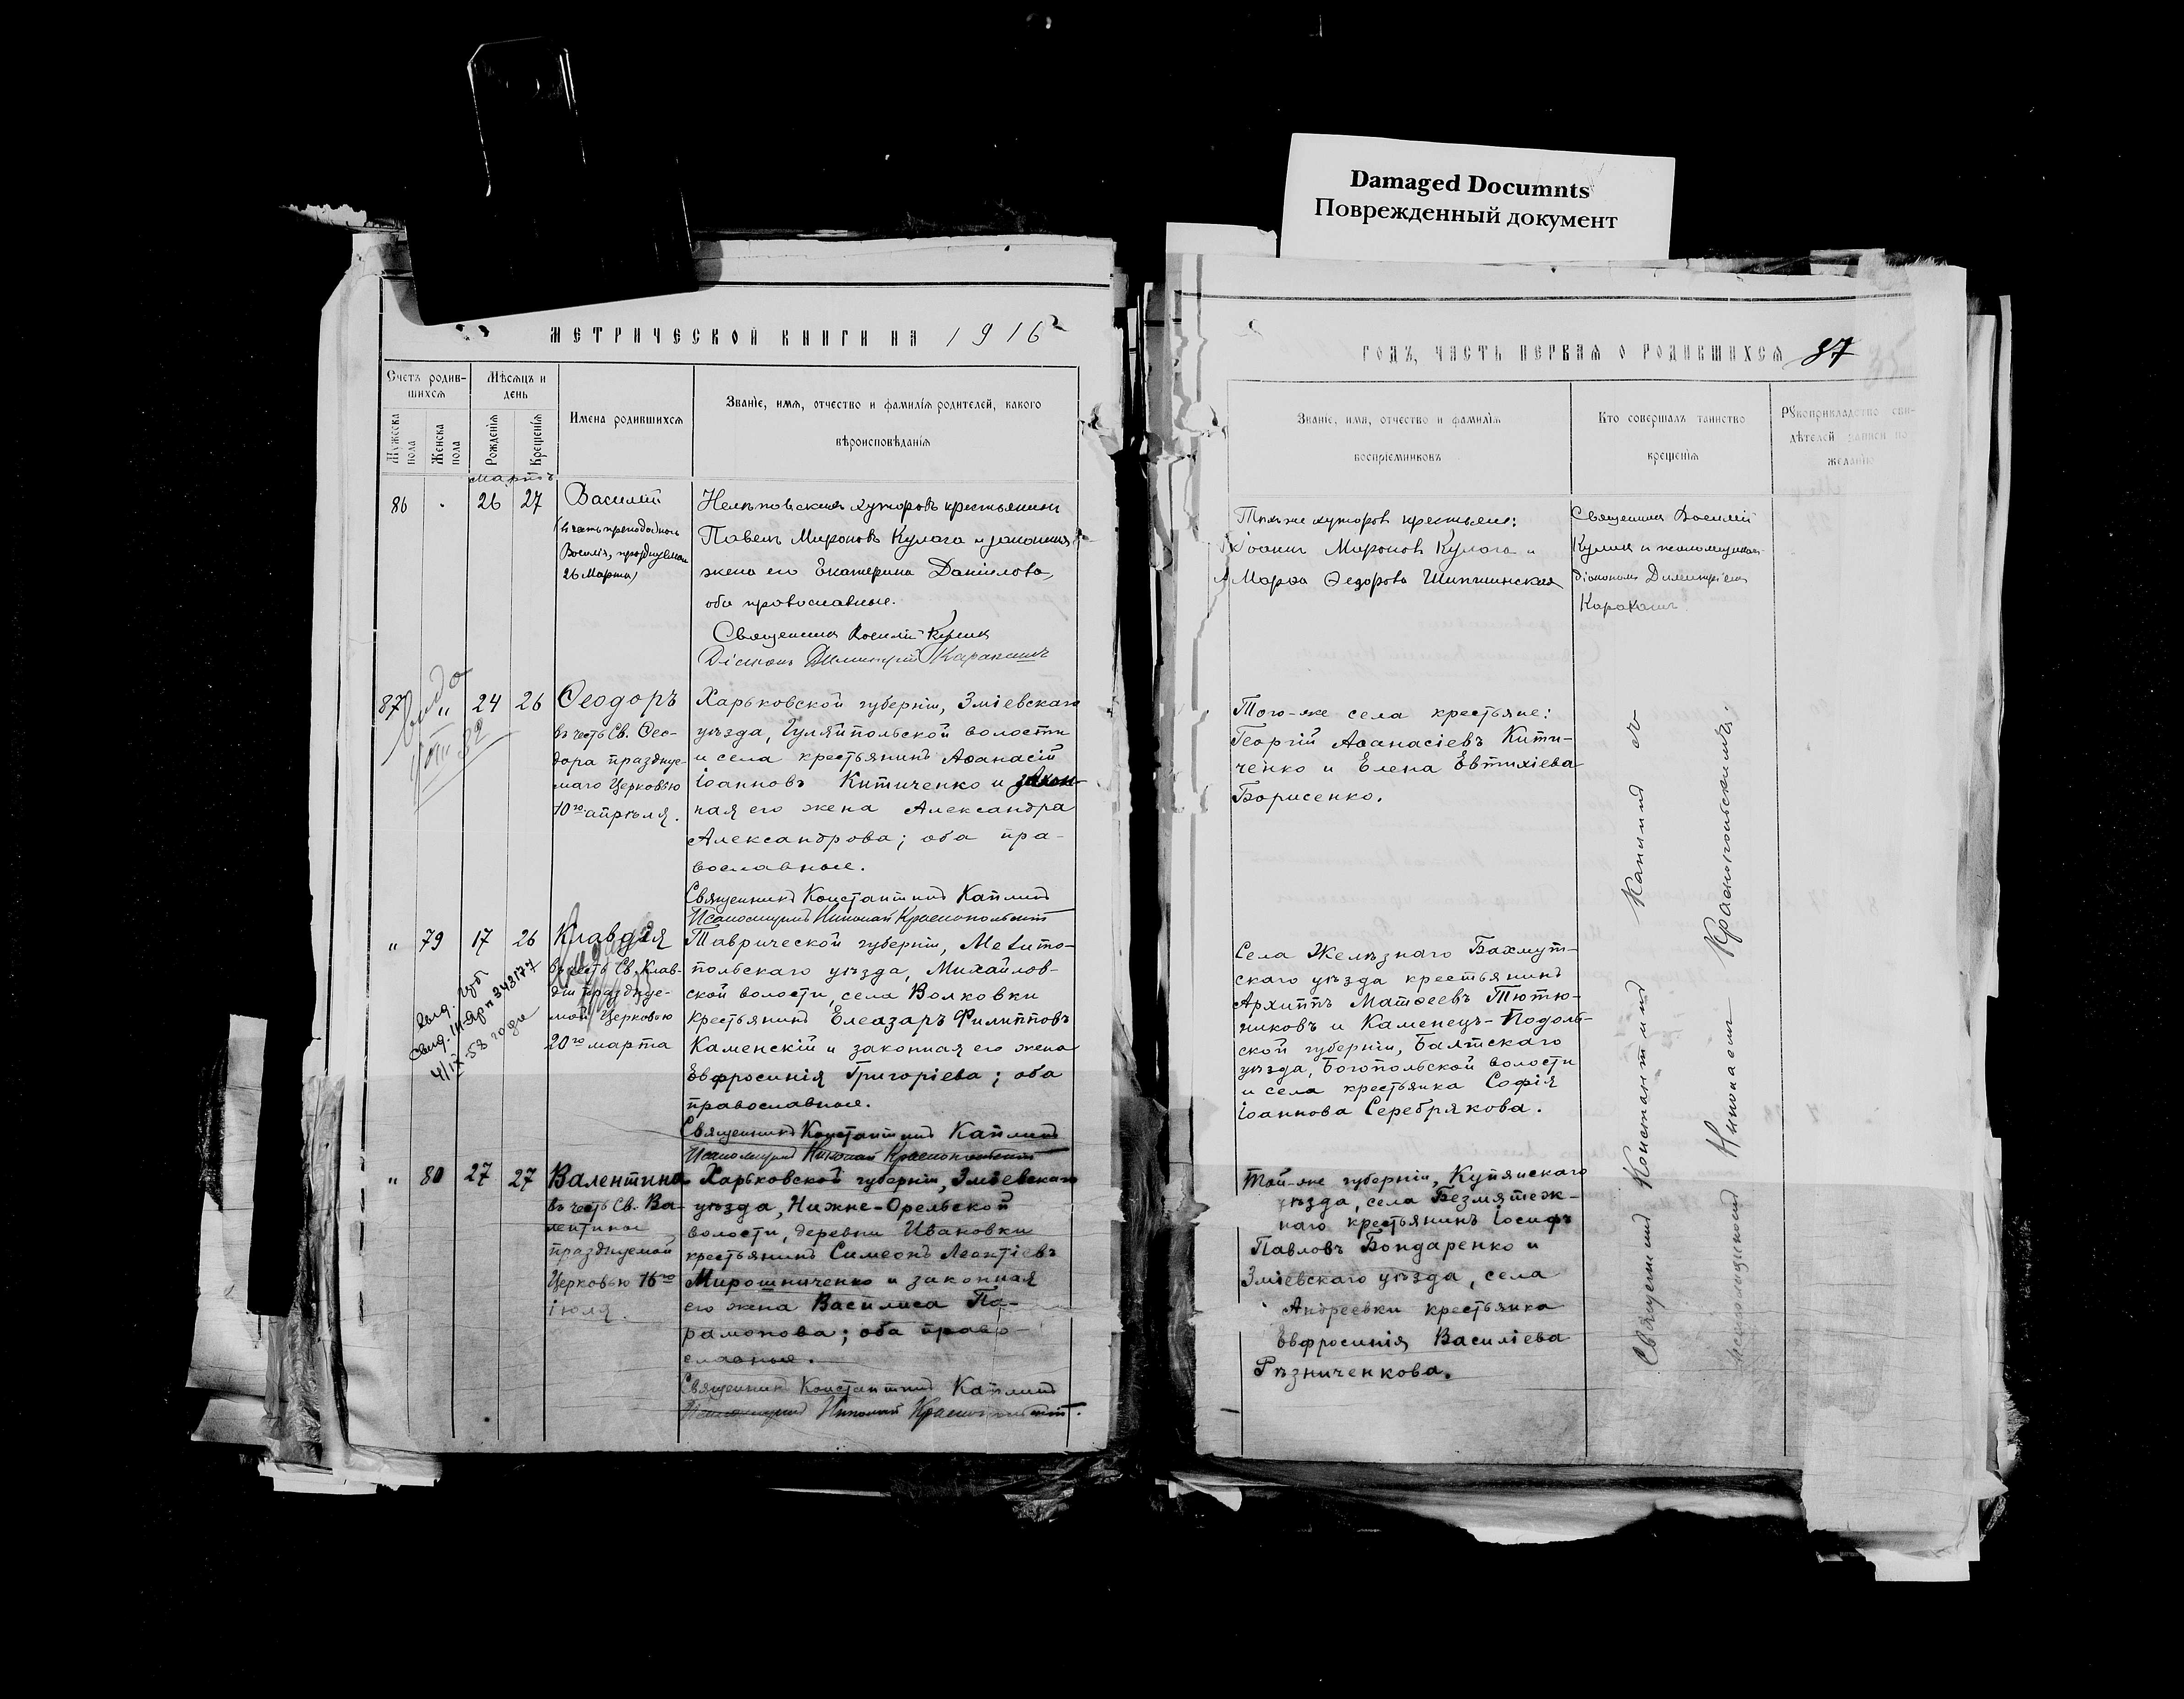 Damaged Documnts
Поврежденный документ
МЕТРИЧЕСКОЙ КНИГИ НА 1916
ГОДЪ, ЧАСТЬ ПЕРВАЯ О РОДИВШИХСЯ 87
Счетъ родив-
шихся
Мужеска
пола
Женска
пола
Мѣсяцъ и
день
Рожденія
Крещенія
Имена родившихся
Званіе, имя, отчество и фамилія родителей, какого
вѣроисповѣданія
Званіе, имя, отчество и фамилія
воспріемниковъ
Кто совершалъ таинство
крещенія
Рукоприкладство сви-
дѣтелей записи по
желанію
Мартъ
86 26 27
Василій
Василія, празднуемаго
26 Марта)
хуторовъ крестьянинъ
Павелъ Мироновъ Кулага и законная
жена его Екатерина Даніилова,
оба православные.
Священникъ Василій
Діаконъ Димитрій
хуторовъ крестьяне:
Іоаннъ Мироновъ Кулага и
Марѳа Ѳедорова
Священникъ Василій
діакономъ Димитріемъ
87 " 24 26
Ѳеодоръ
въ честь Св. Ѳео-
дора празднуе-
маго Церковью
10го апрѣля.
Харьковской губерніи, Зміевскаго
уѣзда, Гуляйпольской волости
и села крестьянинъ Аѳанасій
Іоанновъ Китиченко и закон-
ная его жена Александра
Александрова; оба пра-
вославные.
Священникъ Константинъ Каплинъ
Псаломщикъ Николай Краснопольскій
Того-же села крестьяне:
Георгій Аѳанасіевъ Кити-
ченко и Елена Евтихіева
Борисенко.
" 79 17 26
Клавдія
въ честь Св. Клав-
діи празднуе-
мой Церковью
20го марта
Таврической губерніи, Мелито-
польскаго уѣзда, Михайлов-
ской волости, села Волковки
крестьянинъ Елеазаръ Филипповъ
Каменскій и законная его жена
Евфросинія Григоріева; оба
православные.
Священникъ Константинъ Каплинъ
Псаломщикъ Николай Краснопольскій
Села Желѣзнаго Бахмут-
скаго уѣзда крестьянинъ
Архиппъ Матѳеевъ Тютю-
никовъ и Каменецъ-Подоль-
ской губерніи, Балтскаго
уѣзда, Богопольской волости
и села крестьянка Софія
Іоаннова Серебрякова.
" 80 27 27
Валентина
въ честь Св. Ва-
лентины
празднуемой
Церковью 16го
іюля.
Харьковской губерніи, Зміевскаго
уѣзда, Нижне-Орельской
волости, деревни Ивановки
крестьянинъ Симеонъ Леонтіевъ
Мирошниченко и законная
его жена Василиса Па-
рамонова; оба право-
славные.
Священникъ Константинъ Каплинъ
Псаломщикъ Николай Краснопольскій.
Той-же губерніи, Купянскаго
уѣзда, села Безмятеж-
наго крестьянинъ Іосифъ
Павловъ Бондаренко и
Зміевскаго уѣзда, села
Андреевки крестьянка
Евфросинія Василіева
Рѣзниченкова.
Священникъ Константинъ Каплинъ съ
псаломщикомъ Николаемъ Краснопольскимъ.